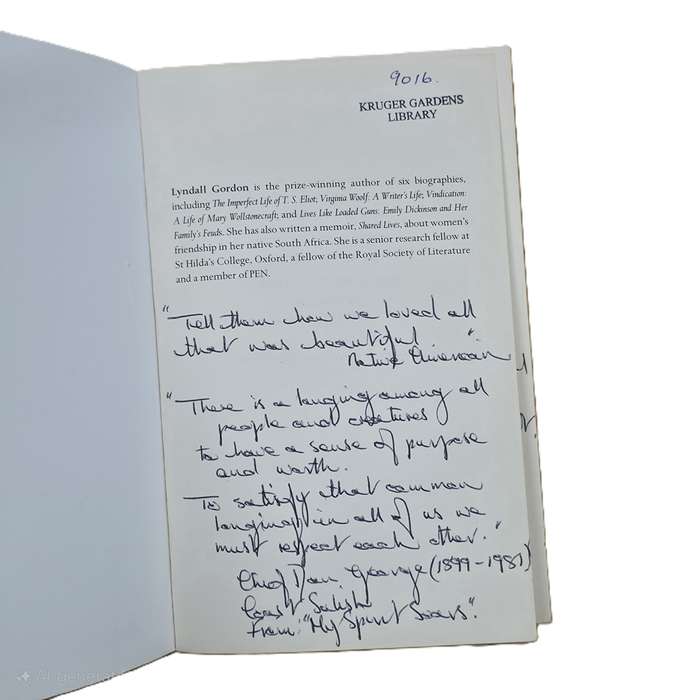 9016.
KRUGER GARDENS
LIBRARY
Lyndall Gordon is the prize-winning author of six biographies,
including The Imperfect Life of T. S. Eliot; Virginia Woolf: A Writer's Life; Vindication:
A Life of Mary Wollstonecraft; and Lives Like Loaded Guns: Emily Dickinson and Her
Family's Feuds. She has also written a memoir, Shared Lives, about women's
friendship in her native South Africa. She is a senior research fellow at
St Hilda's College, Oxford, a fellow of the Royal Society of Literature
and a member of PEN.
"Tell them how we loved all
that was beautiful"
Native American
"There is a longing among all
people and creatures
to have a sense of purpose
and worth.
To satisfy that common
longing in all of us we
must respect each other."
Chief Dan George (1899-1981)
Coast Salish
From: "My Spirit Soars".